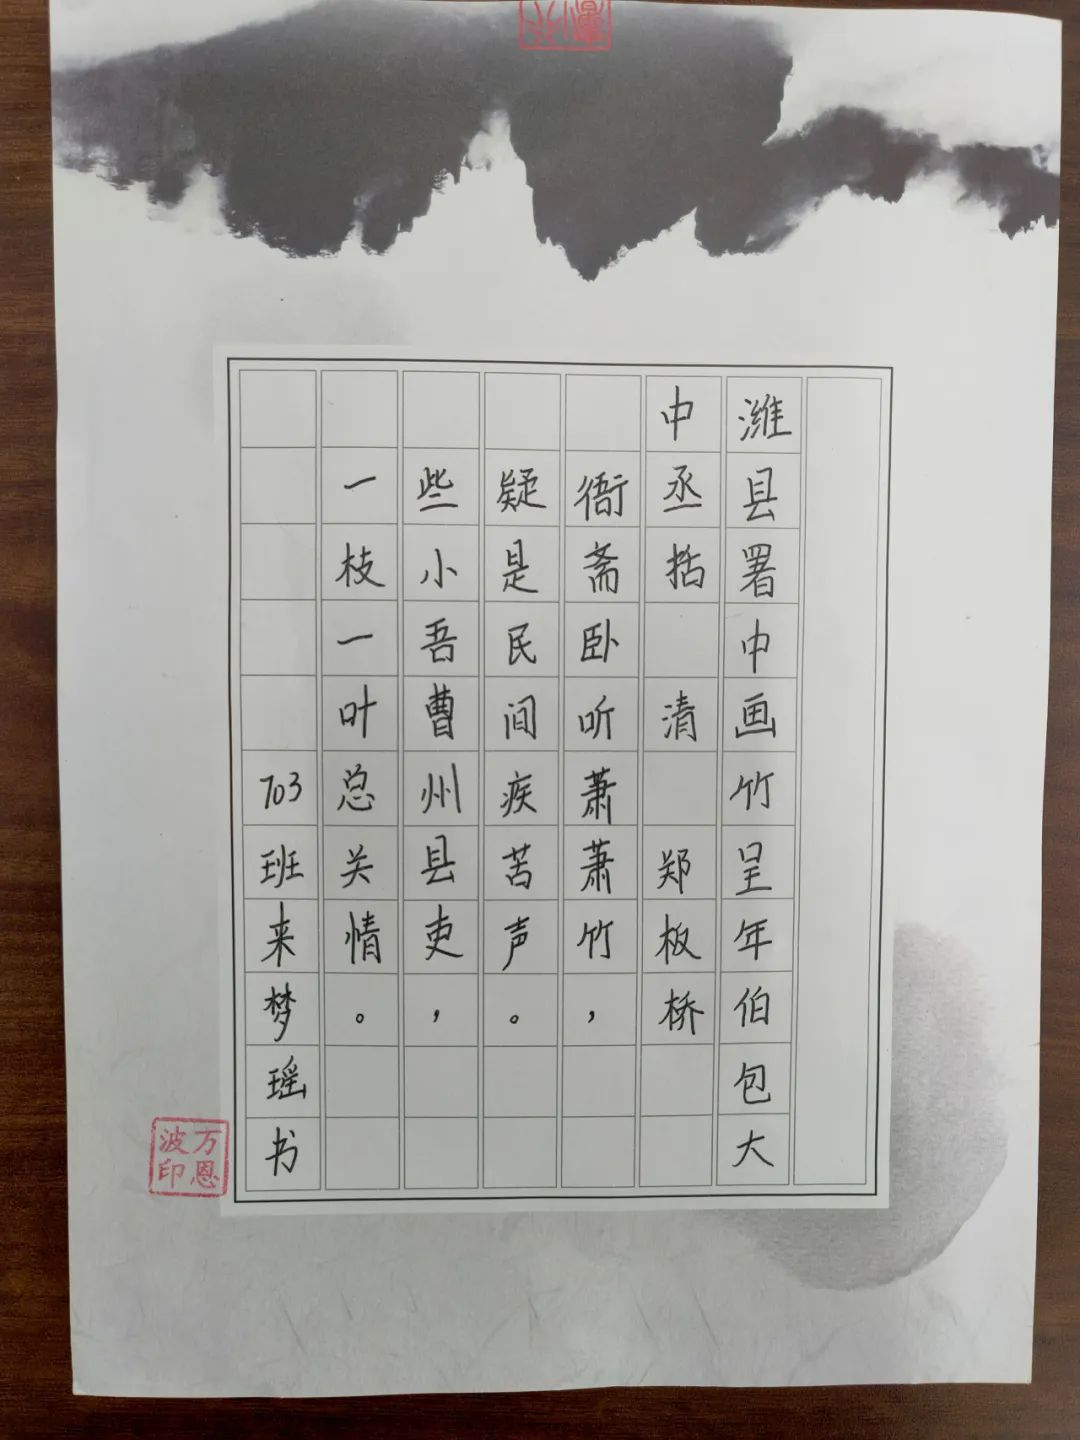 潍县署中画竹呈年伯包大
中丞括 清 郑板桥
衙斋卧听萧萧竹，
疑是民间疾苦声。
些小吾曹州县吏，
一枝一叶总关情。
703班来梦瑶书
万恩波印